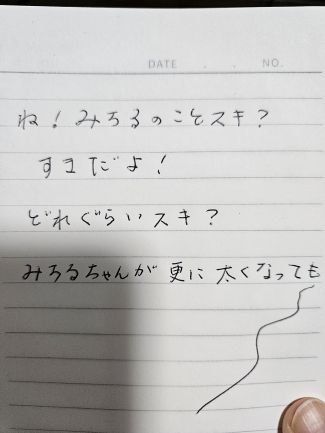 DATE . . NO.
ね！みちるのことスキ？
すキだよ！
どれぐらいスキ？
みちるちゃんが更に太くなっても